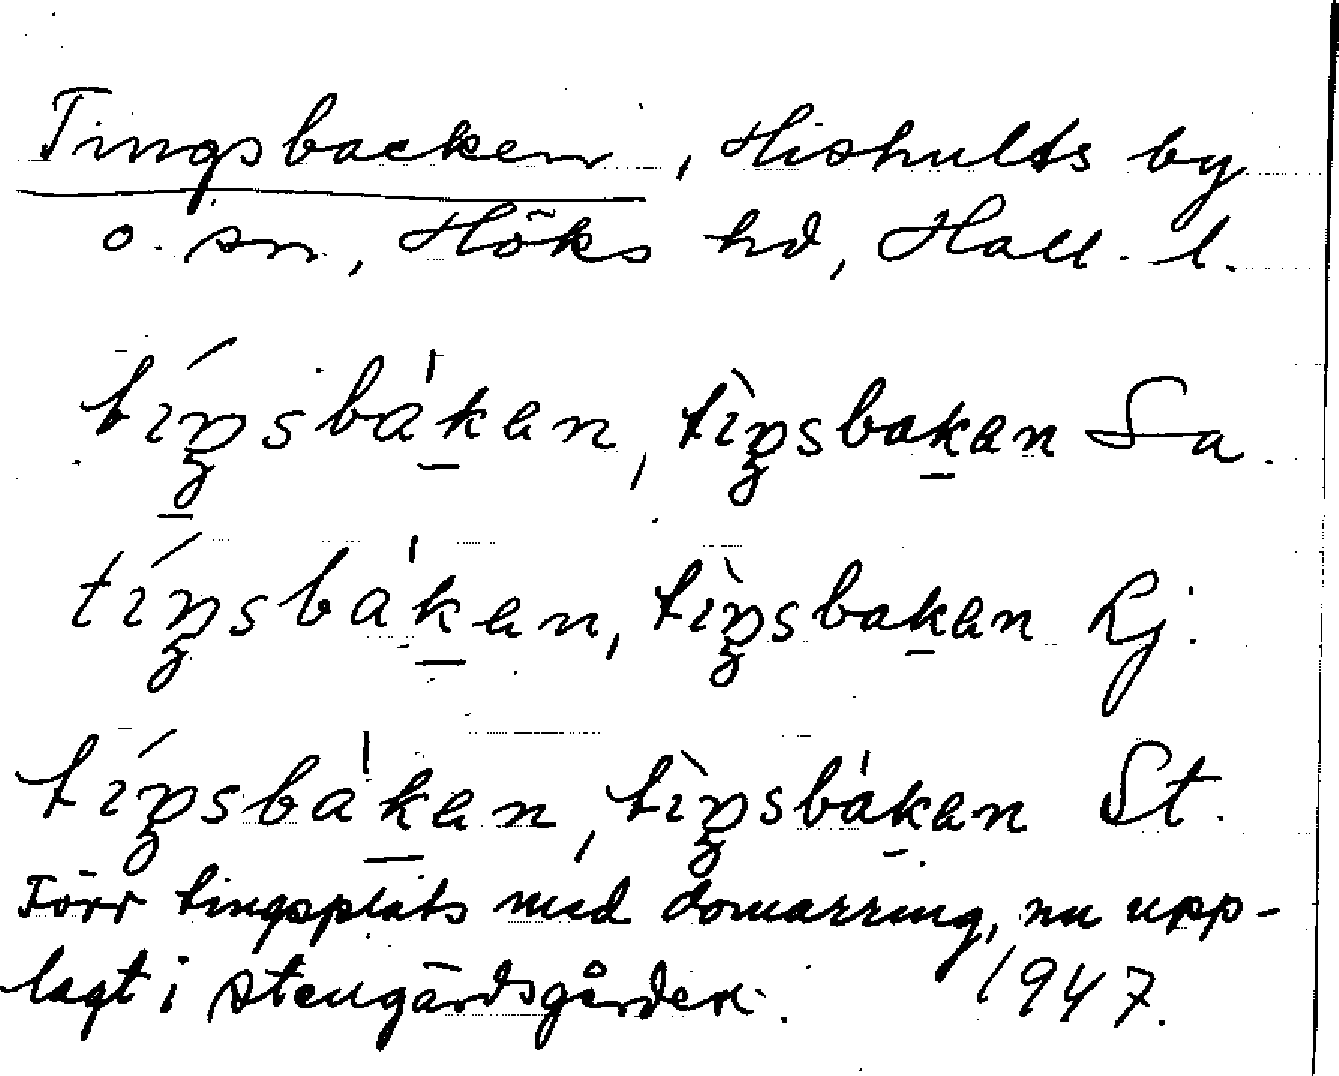 Tingsbacken, Hishults by
o. sn, Höks hd, Hall. l.
tíŋsbàken, tìŋsbaken Sa.
tíŋsbàken, tìŋsbaken Lj.
tíŋsbàken, tìŋsbàken St.
Förr tingsplats med domarring, nu upp-
lagt i stengärdsgården. 1947.